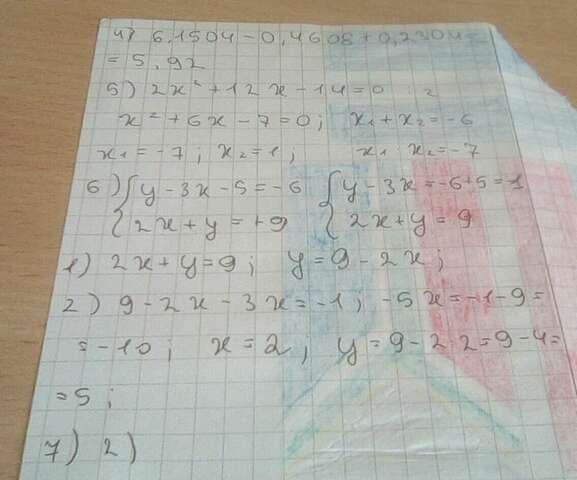 4) 6,1504-0,4608+0,2304=
=5,92
5) 2x²+12x-14=0 :2
x²+6x-7=0; x₁+x₂=-6
x₁=-7; x₂=1; x₁·x₂=-7
6) {y-3x-5=-6 {y-3x=-6+5=1
{2x+y=+9 {2x+y=9
1) 2x+y=9; y=9-2x;
2) 9-2x-3x=-1; -5x=-1-9=
=-10; x=2, y=9-2·2=9-4=
=5;
7) 2)